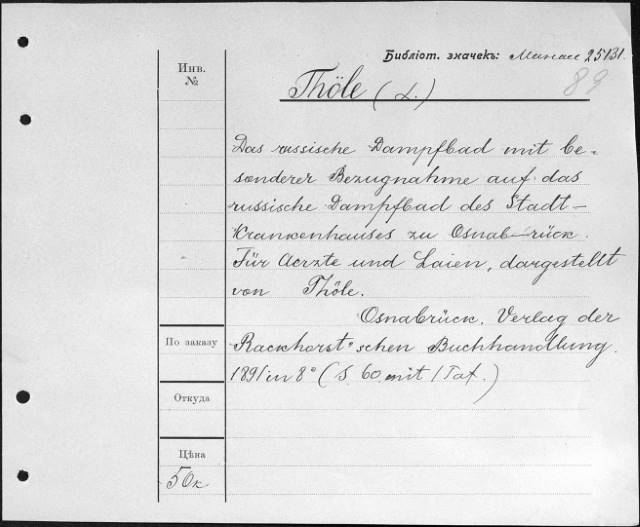 Библіот. значекъ: 25131.
89
Инв.
№
Thöle (L.)
Das russische Dampfbad mit be-
sonderer Bezugnahme auf das
russische Dampfbad des Stadt-
Krankenhauses zu Osnab-rück.
Für Aerzte und Laien, dargestellt
von Thöle.
Osnabrück. Verlag der
Rackhorst'schen Buchhandlung.
1891 in 8° (S. 60 mit 1 Taf.)
По заказу
Откуда
Цѣна
50 к